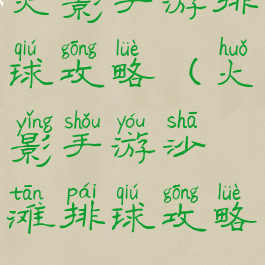 火影手游排
qiú gōng lüè huǒ
球攻略(火
yǐng shǒu yóu shā
影手游沙
tān pái qiú gōng lüè
滩排球攻略